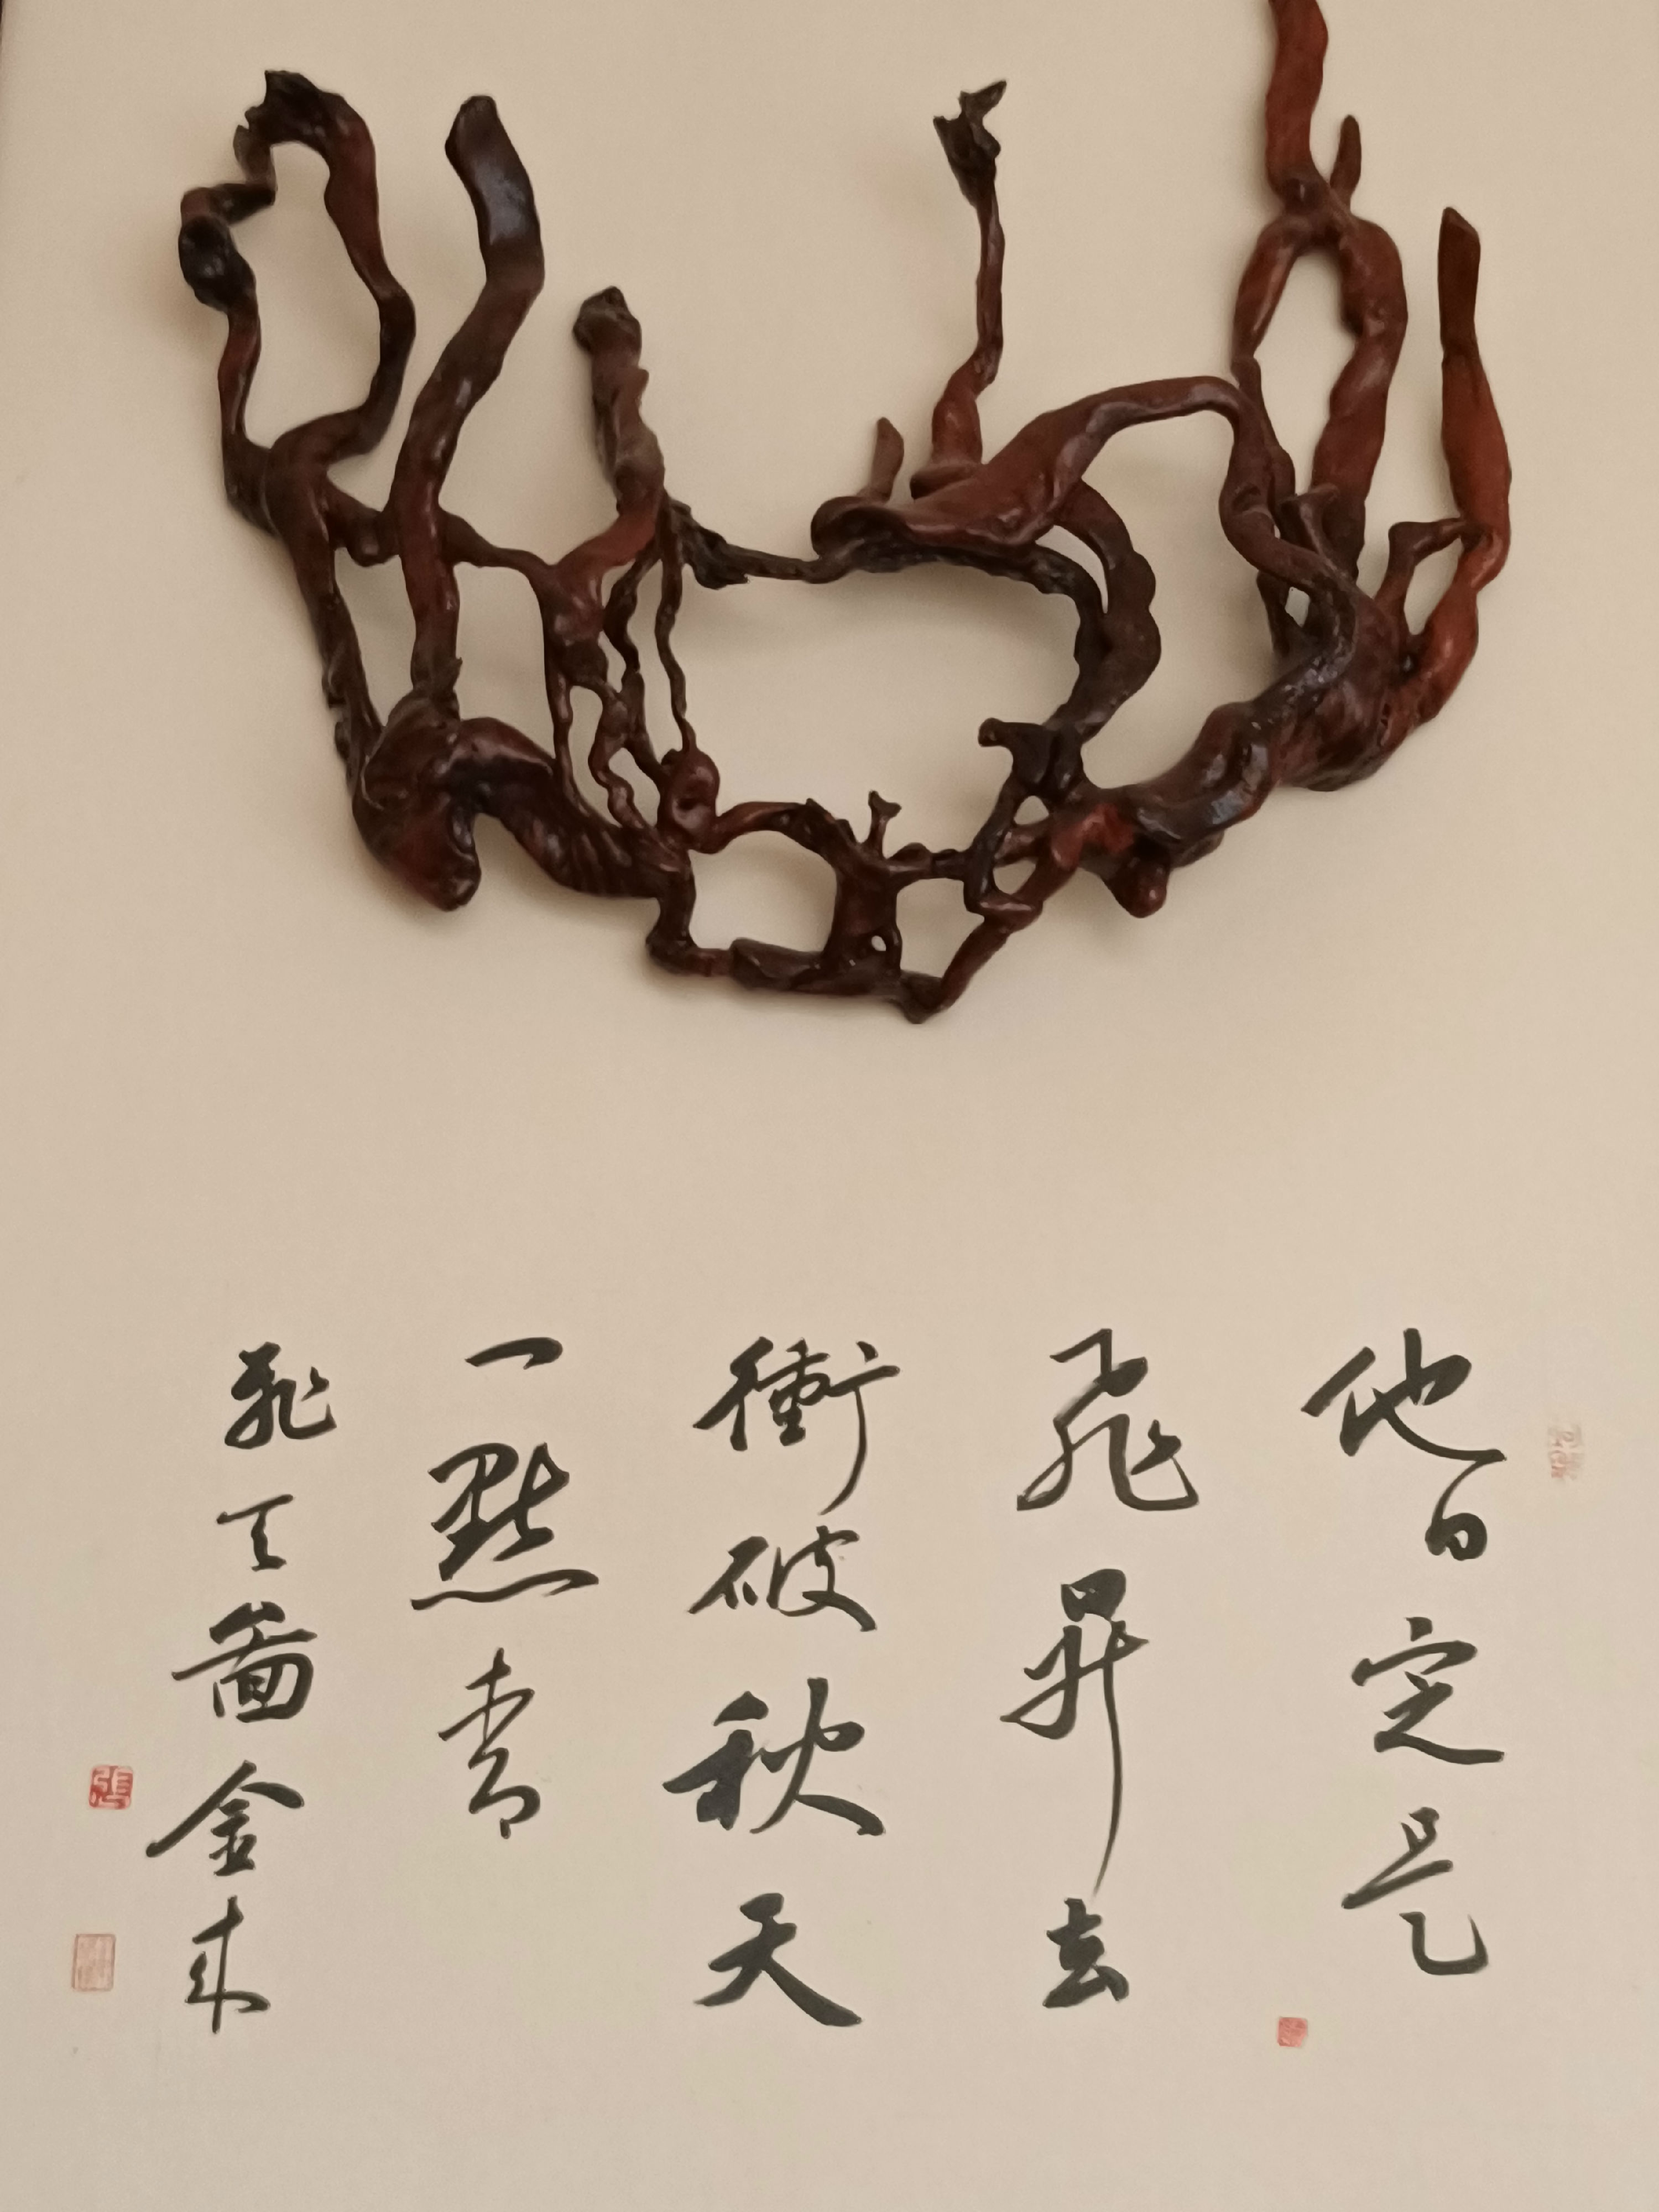 他日定是
飛昇去
衝破秋天
一點青
飛天圖金來
張